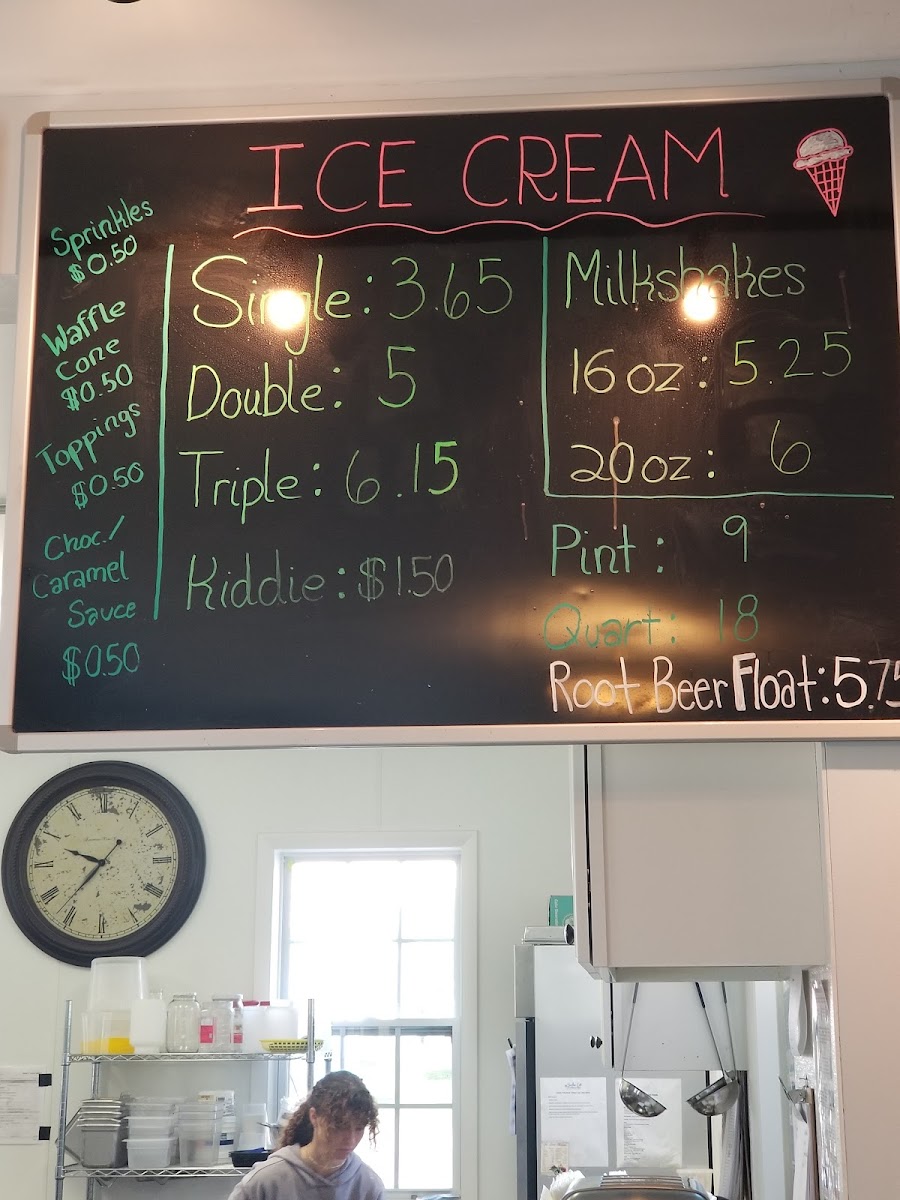 ICE CREAM
Sprinkles
$0.50
Waffle
cone
$0.50
Toppings
$0.50
Choc./
Caramel
Sauce
$0.50
Single: 3.65
Double: 5
Triple: 6.15
Kiddie: $1.50
Milkshakes
16 oz: 5.25
20 oz: 6
Pint: 9
Quart: 18
Root Beer Float: 5.75